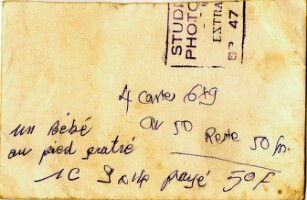 STUDI
PHOTO
EXTRA
BP 47
4 cartes 6x9
au 50
Reste 50 frs.
un Bébé
au pied
1C 9x14 payé 50 F